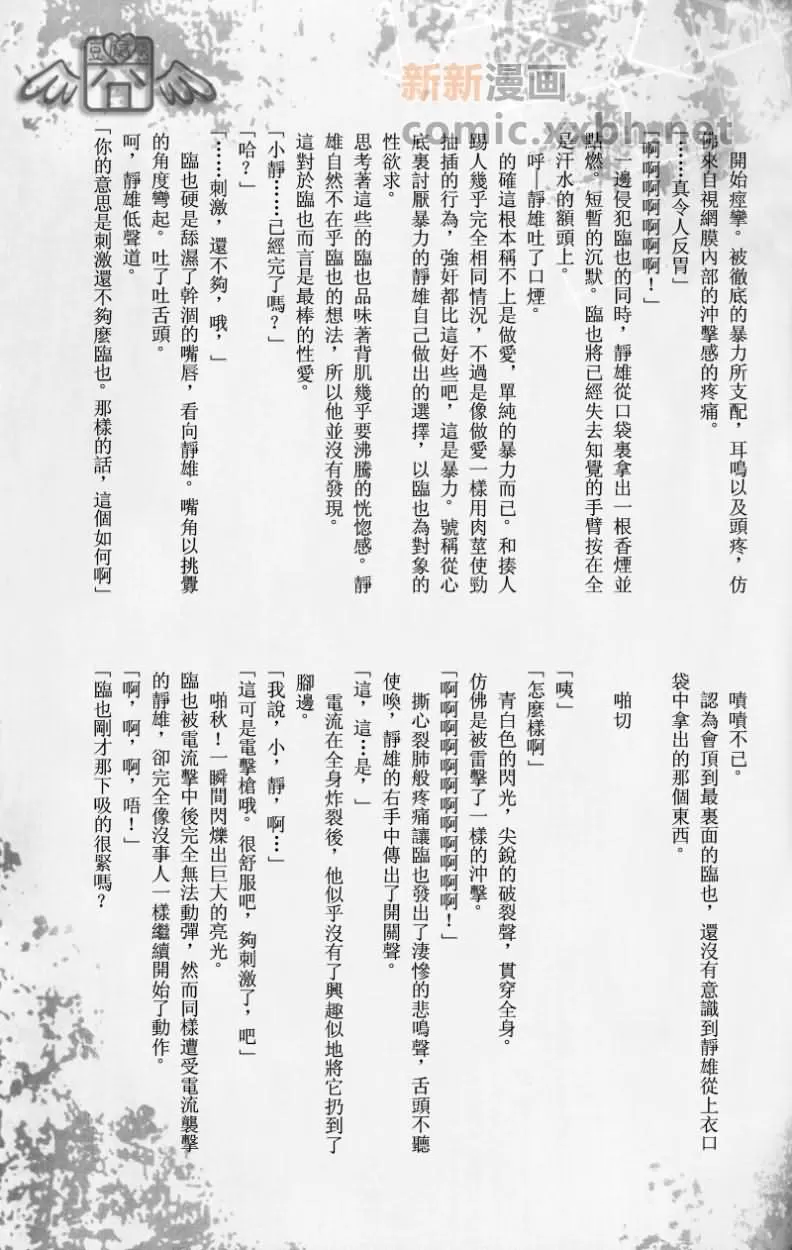 新新漫画
comic.xxbh.net
囧
開始痙攣。被徹底的暴力所支配，耳鳴以及頭疼，仿
佛來自視網膜內部的沖擊感的疼痛。
「……真令人反胃」
「啊啊啊啊啊啊！」
一邊侵犯臨也的同時，靜雄從口袋裏拿出一根香煙並
點燃。短暫的沉默。臨也將已經失去知覺的手臂按在全
是汗水的額頭上。
呼—靜雄吐了口煙。
的確這根本稱不上是做愛，單純的暴力而已。和揍人
踢人幾乎完全相同情況，不過是像做愛一樣用肉莖使勁
抽插的行為，強奸都比這好些吧，這是暴力。號稱從心
底裏討厭暴力的靜雄自己做出的選擇，以臨也為對象的
性欲求。
思考著這些的臨也品味著背肌幾乎要沸騰的恍惚感。靜
雄自然不在乎臨也的想法，所以他並沒有發現。
這對於臨也而言是最棒的性愛。
「小靜……已經完了嗎？」
「哈？」
「……刺激，還不夠，哦，」
臨也硬是舔濕了幹涸的嘴唇，看向靜雄。嘴角以挑釁
的角度彎起。吐了吐舌頭。
呵，靜雄低聲道。
「你的意思是刺激還不夠麼臨也。那樣的話，這個如何啊」
嘖嘖不已。
認為會頂到最裏面的臨也，還沒有意識到靜雄從上衣口
袋中拿出的那個東西。
啪切
「咦」
「怎麼樣啊」
青白色的閃光，尖銳的破裂聲，貫穿全身。
仿佛是被雷擊了一樣的沖擊。
「啊啊啊啊啊啊啊啊啊啊啊！」
撕心裂肺般疼痛讓臨也發出了淒慘的悲鳴聲，舌頭不聽
使喚，靜雄的右手中傳出了開關聲。
「這，這…是，」
電流在全身炸裂後，他似乎沒有了興趣似地將它扔到了
腳邊。
「我說，小，靜，啊…」
「這可是電擊槍哦。很舒服吧，夠刺激了，吧」
啪秋！一瞬間閃爍出巨大的亮光。
臨也被電流擊中後完全無法動彈，然而同樣遭受電流襲擊
的靜雄，卻完全像沒事人一樣繼續開始了動作。
「啊，啊，啊，唔！」
「臨也剛才那下吸的很緊嗎？